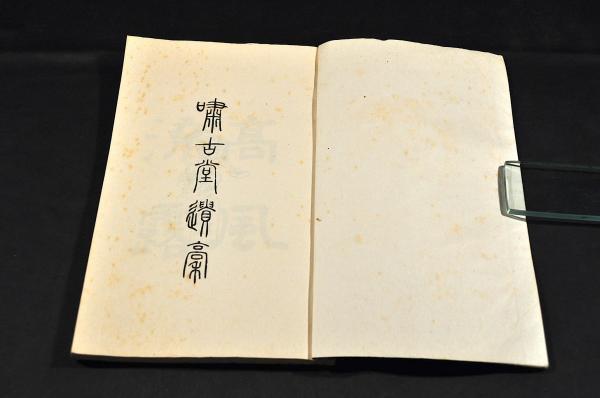 嘯古堂遺稾